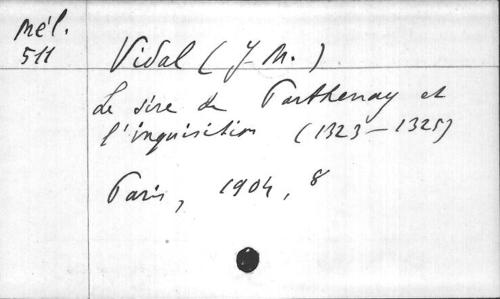 Mél.
511
Vidal (J M.)
Le sire de Parthenay et
l'inquisition (1323-1325)
Paris, 1904, 8